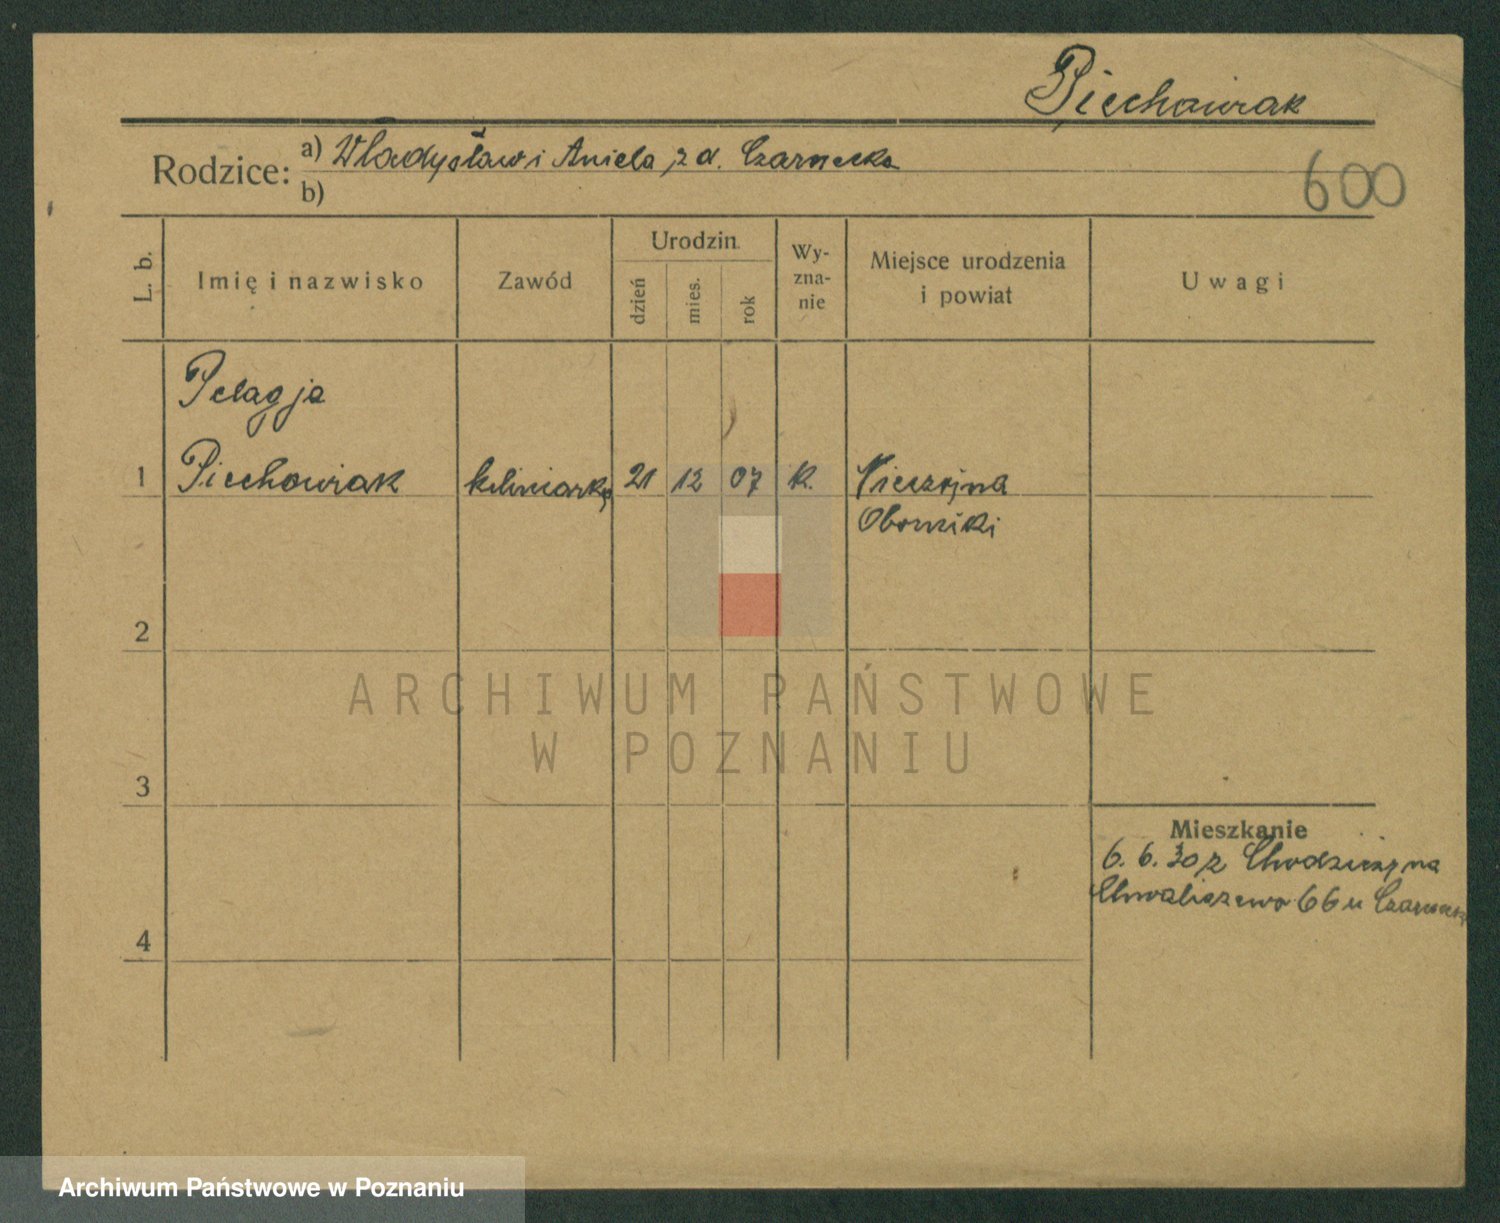 Piechowiak
Rodzice: a) Władysław i Aniela z d. Czarnecka
b)
600
L. b. Imię i nazwisko Zawód Urodzin. dzień mies. rok Wy-zna-nie Miejsce urodzenia i powiat Uwagi
Pelagja
1 Piechowiak kelniarka 21 12 07 k. Nieczajna
Oborniki
2
ARCHIWUM PAŃSTWOWE
W POZNANIU
3
Mieszkanie
6. 6. 30 z Chodzieży na
Chwaliszewo 66 u Czarnecka
4
Archiwum Państwowe w Poznaniu